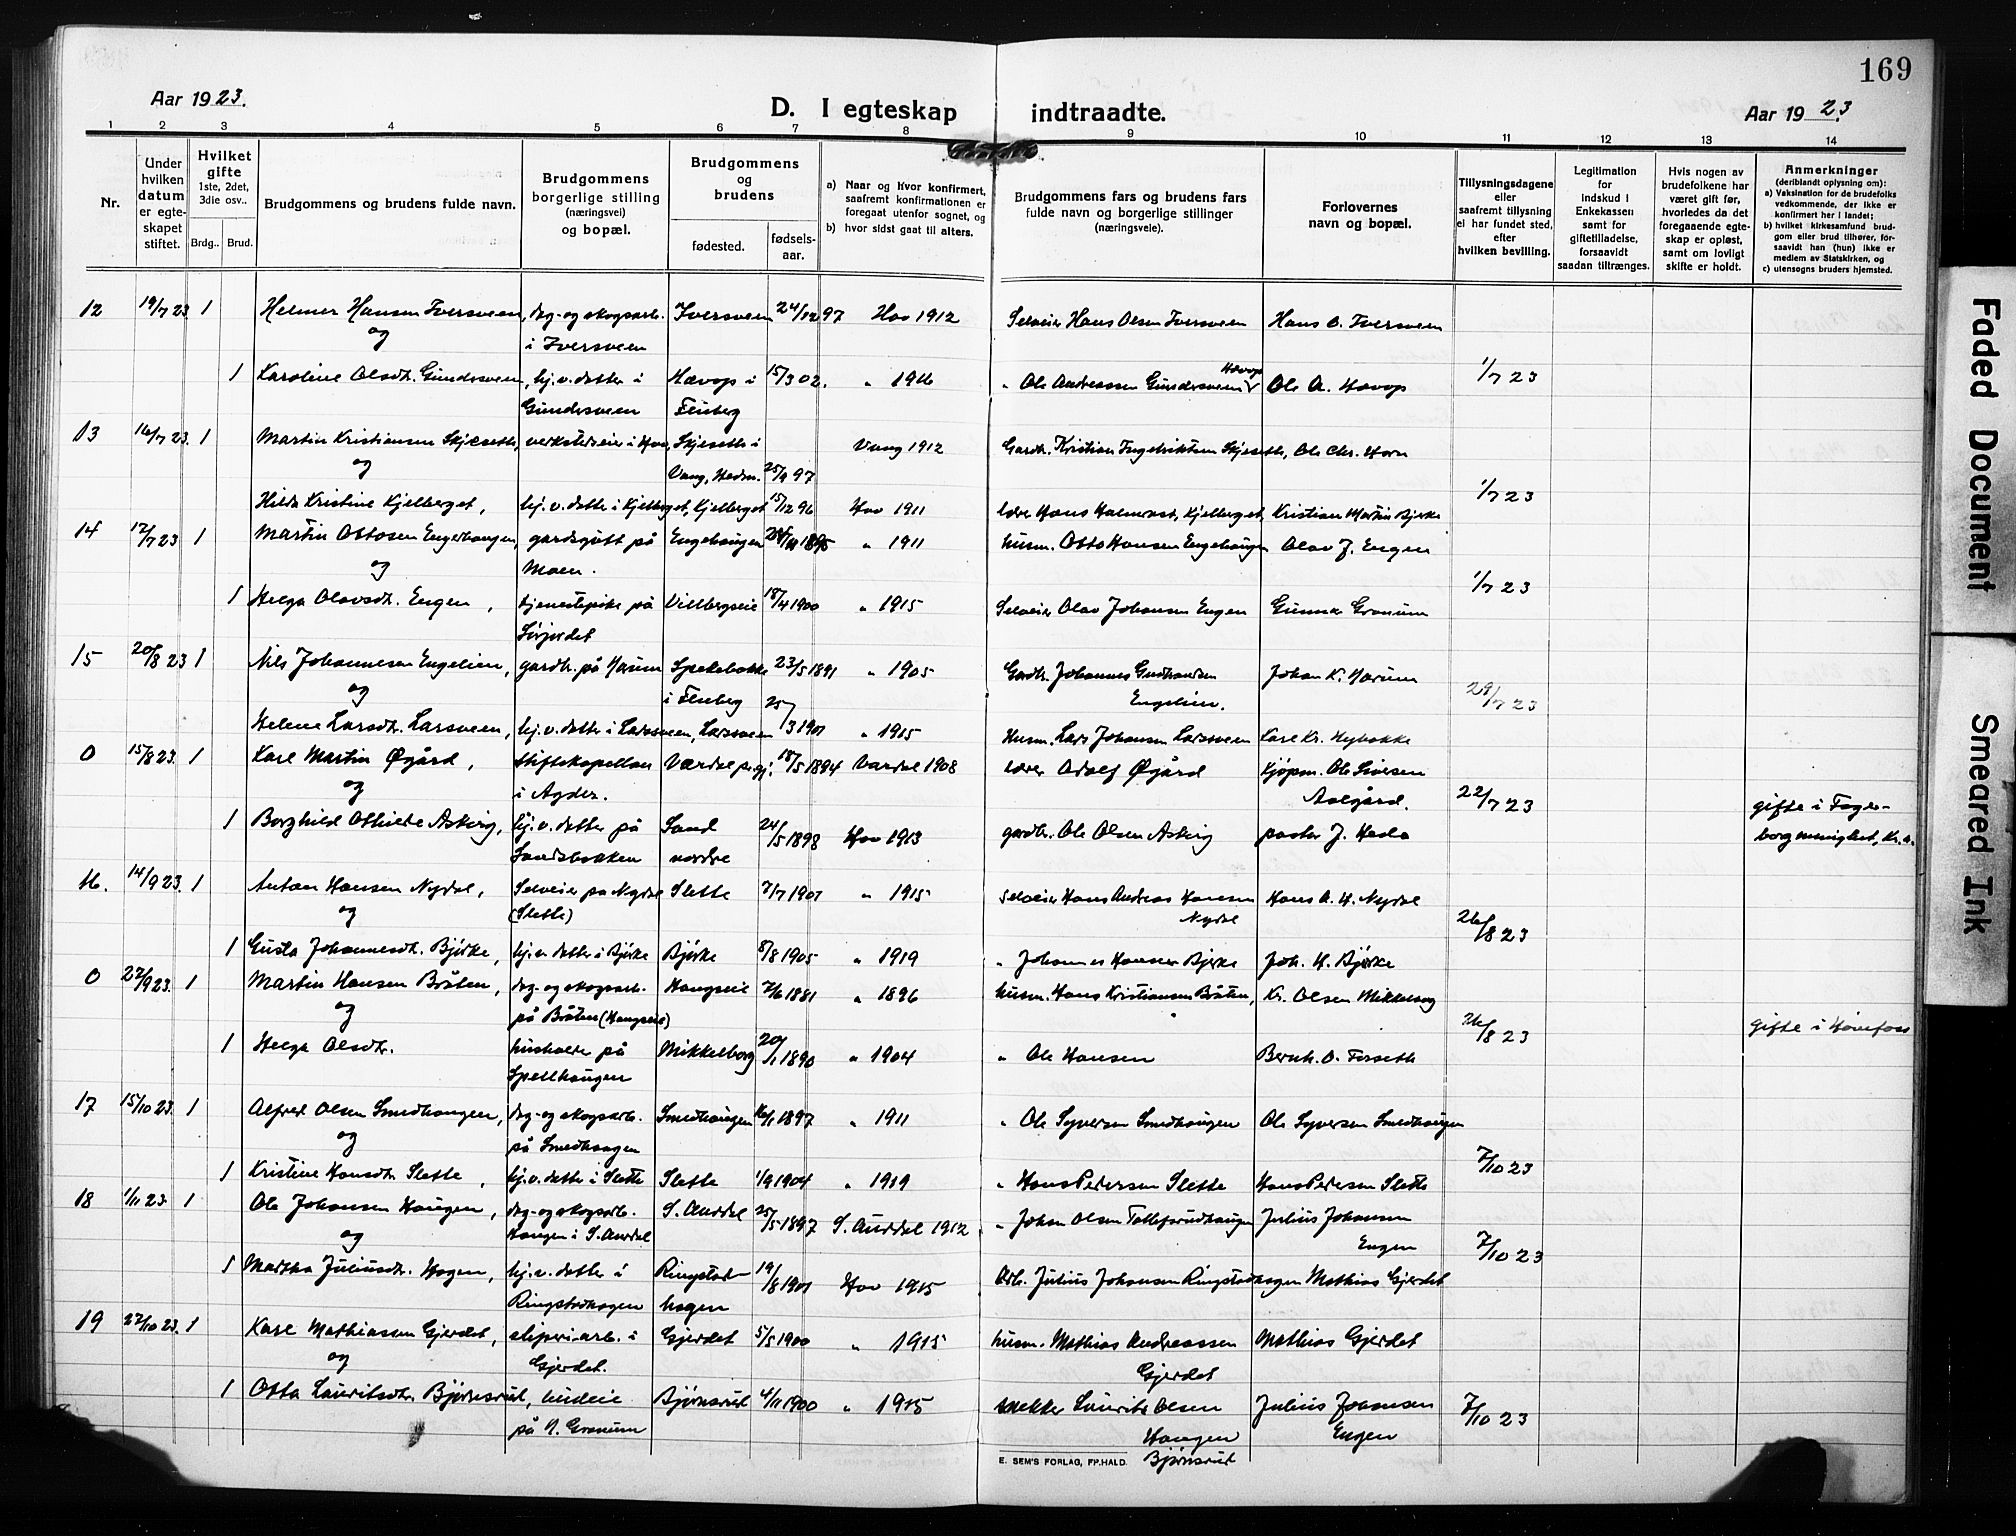 169
Aar 1923.
D. I egteskap indtraadte.
Aar 1923
1 2 3 4 5 6 7 8 9 10 11 12 13 14
Nr.
Under hvilken datum er egteskapet stiftet.
Hvilket gifte 1ste, 2det, 3die osv..
Brdg.. Brud.
Brudgommens og brudens fulde navn.
Brudgommens borgerlige stilling (næringsvei) og bopæl.
Brudgommens og brudens
fødested.
fødselsaar.
a) Naar og hvor konfirmert, saafremt konfirmationen er foregaat utenfor sognet, og
b) hvor sidst gaat til alters.
Brudgommens fars og brudens fars fulde navn og borgerlige stillinger (næringsveie).
Forlovernes navn og bopæl.
Tillysningsdagene eller saafremt tillysning ei har fundet sted, efter hvilken bevilling.
Legitimation for indskud i Enkekassen samt for giftetilladelse, forsaavidt saadan tiltrænges.
Hvis nogen av brudefolkene har været gift før, hvorledes da det foregaaende egteskap er opløst, samt om lovligt skifte er holdt.
Anmerkninger (deriblandt oplysning om):
a) Vaksination for de brudefolks vedkommende, der ikke er konfirmert her i landet;
b) hvilket kirkesamfund brudgom eller brud tilhører, forsaavidt han (hun) ikke er medlem av Statskirken, og
c) utensogns bruders hjemsted.
12 19/7 23 1 Helmer Hansen Iversveen, dag- og skogsarb. Iversveen 24/12 97 Hov 1912 Selveier Hans Olsen Iversveen Hans O. Iversveen
og i Iversveen
1 Karoline Olsdtr. Gundersveen, hj.v. datter i Hævop i 15/3 02. " 1916 " Ole Andreassen Gundersveen Hævop Ole A. Hævop 1/7 23
Gundersveen Fluberg
13 16/7 23. 1 Martin Kristiansen Skjeseth, verkstedeier i Hov, Skjeseth i Vang 1912 Gardbr. Kristian Skjeseth, Ole Chr. Horn
og Vang, Hedm. 25/9 97
Hilda Kristine Kjelberget, hj.v. datter i Kjelberget, Kjelberget 15/12 96 Hov 1911 lærer Hans Halmrast, Kjelberget, Kristian Martin Bjerke 1/7 23
14 12/7 23 1 Martin Ottosen Engerhaugen, gardsgutt på Engehaugen 1895 " 1911 husm. Otto Hansen Engehaugen Olav J. Engen
og Moen.
1 Helga Olavsdtr. Engen, tjenestepike på Villbergseie 18/4 1900 " 1915 Selveier Olav Johansen Engen Gunnar Granum 1/7 23
Sørjordet
15 20/8 23 1 Nils Johannesen Engelien, gardbr. på Harum Spekebakke 23/5 1891 " 1905 Gardbr. Johannes Gudbrandsen Johan K. Harum
og i Fluberg Engelien. 29/7 23
Helene Larsdtr. Larsveen, hj.v. datter i Larsveen, Larsveen 25/3 1901 " 1915 Husm. Lars Johansen Larsveen Lars Kr. Nybakke
0 15/8 23. 1 Karl Martin Øgård, stiftskapellan Værdal pr.gj. 18/5 1894 Vardal 1908 lærer Adolf Øgård Kjøpm. Ole Sivesen
og i Agder. Aalgård. 22/7 23 gifte i Fager-
1 Borghild Othilie Askvig, hj.v. datter på Sand 24/5 1898 Hov 1913 gardbr. Ole Olsen Askvig pastor J. Hasla borg menighet, Kr.a.
Sandsbakken nordre
16. 14/9 23. 1 Anton Hansen Nydal, Selveier på Nydal Slette 7/7 1901 " 1915 selveier Hans Andreas Hansen Hans A. H. Nydal
og (Slette) Nydal 26/8 23
1 Gusta Johannesdtr. Bjørke, hj.v. datter i Bjørke Bjørke 8/8 1905 " 1919 " Johannes Hansen Bjørke Joh. H. Bjørke
0 22/9 23. 1 Martin Hansen Bråten, dag- og skogsarb. Haugseie 7/6 1881 " 1896 husm. Hans Kristiansen Bråten, Kr. Olsen Mikkelborg
og på Bråten (Haugseie) 26/8 23 gifte i Hønefoss
1 Helga Olsdtr. husholde på Mikkelborg 20/1 1890 " 1904 " Ole Hansen Bernh. O. Forseth
Spellhaugen
17 15/10 23. 1 Alfred Olsen Smedhaugen, dag- og skogsarb. Smedhaugen 16/1 1897 " 1911 " Ole Syversen Smedhaugen Ole Syversen Smedhaugen
og på Smedhaugen
1 Kristine Hansdtr. Slette, hj.v. datter i Slette Slette 1/9 1904 " 1919 " Hans Pedersen Slette Hans Pedersen Slette 7/10 23
18 1/11 23. 1 Ole Johansen Haugen, dag- og skogsarb. S. Aurdal 25/5 1897 S. Aurdal 1912 " Johan Olsen Tollefsrudhaugen Julius Johansen
og Haugen i S. Aurdal Engen 7/10 23
1 Martha Juliusdtr. Hagen, hj.v. datter i Ringstad- 19/8 1901 Hov 1915 Arb. Julius Johansen Ringstadhagen Mathias Gjerdet
Ringstadhagen hagen
19 27/10 23. 1 Karl Mathiassen Gjerdet, sliperiarb. i Gjerdet 5/5 1900 " 1915 husm. Mathias Andreassen Mathias Gjerdet
og Gjerdet. Gjerdet
1 Otta Lauritsdtr. Bjørnsrud, budeie Bjørnsrud 4/11 1900 " 1915 snekker Laurits Olsen Julius Johansen 7/10 23
på N. Granum Haugen Engen
Bjørnsrud
E. SEM'S FORLAG, FR.HALD.
Faded Document
Smeared Ink